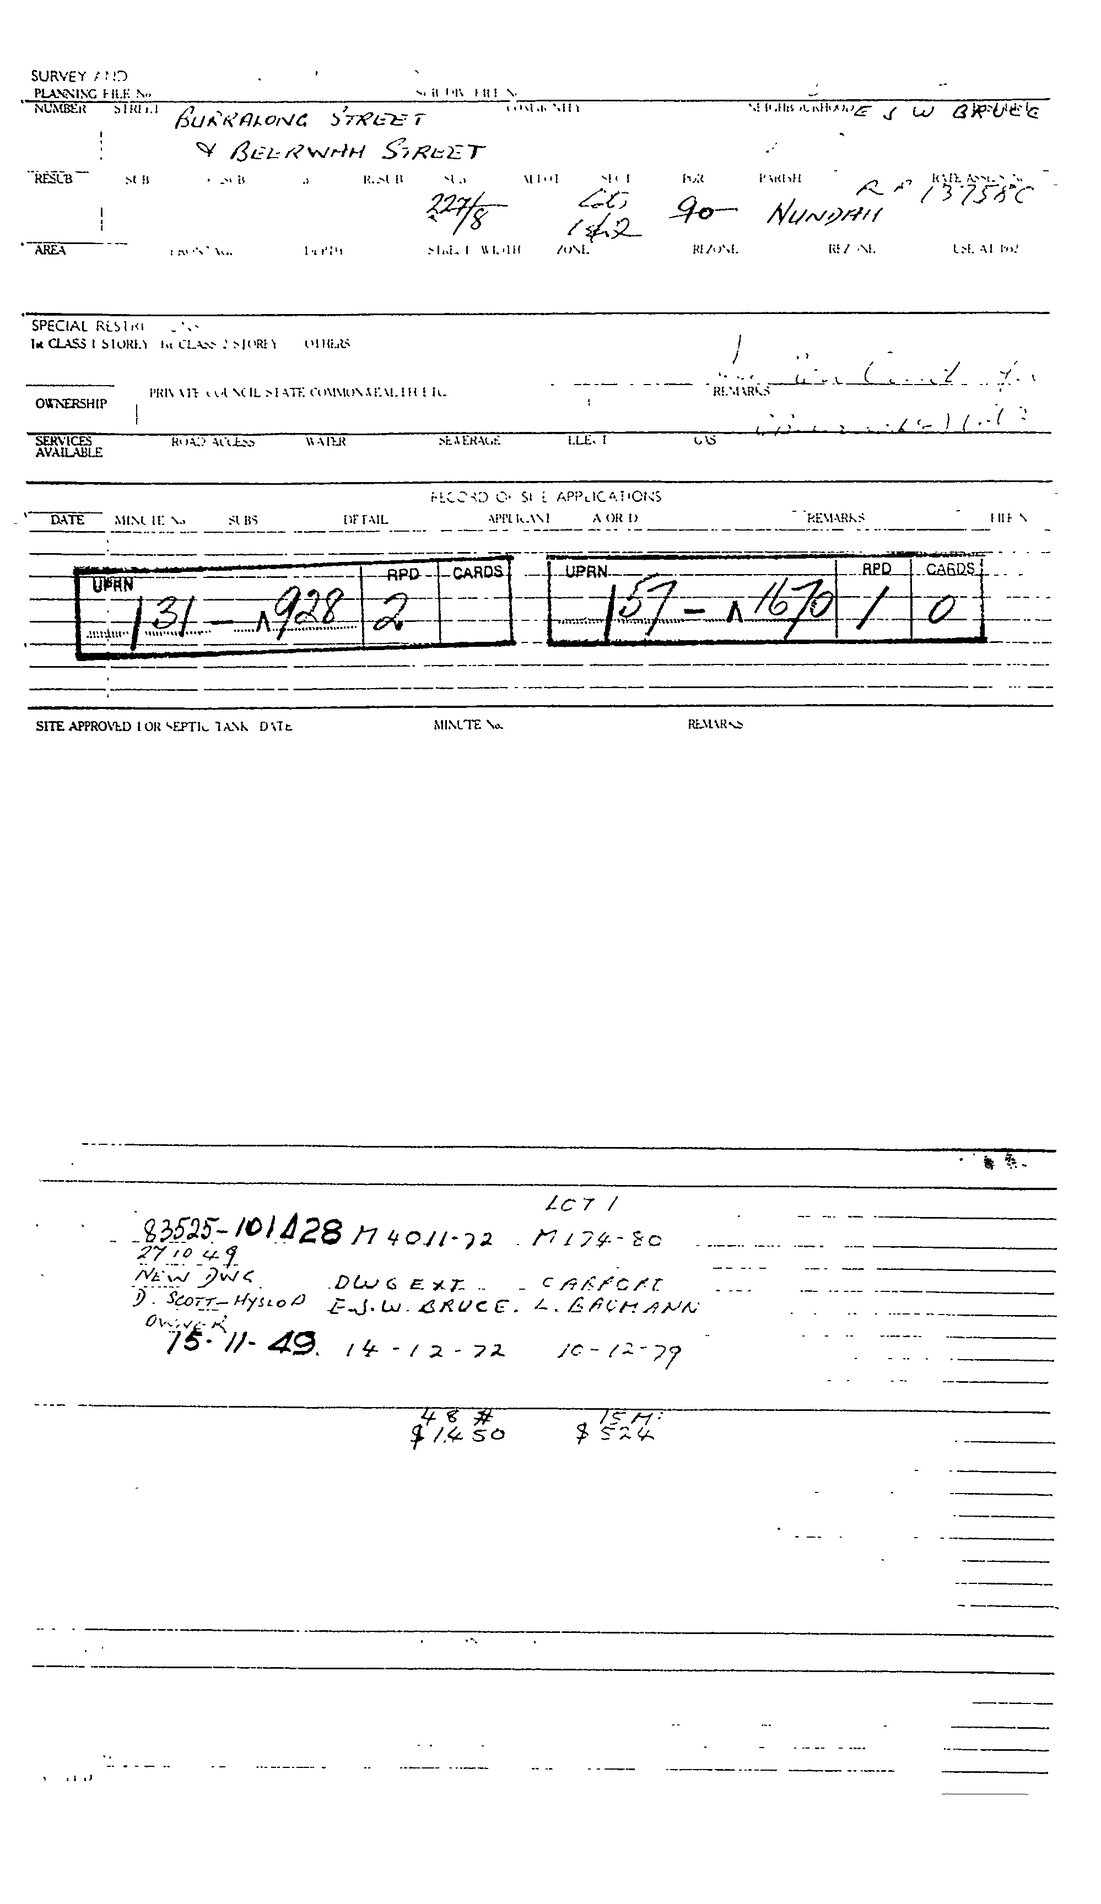 SURVEY AND
PLANNING FILE No
NUMBER STREET COMMUNITY NEIGHBOURHOOD E J W BRUCE
BURRALONG STREET
& BEERWAH STREET
RESUB SUB R.SUB ALLOT SECT POR PARISH RATE ASSESS No
227/8 Lots 1&2 90 NUNDAH R P 13758C
AREA FRONTAGE DEPTH STREET WIDTH ZONE REZONE REZONE USE AT
SPECIAL
1st CLASS 1 STOREY 1st CLASS 2 STOREY OTHERS
OWNERSHIP PRIVATE COUNCIL STATE COMMONWEALTH ETC. REMARKS
SERVICES AVAILABLE ROAD ACCESS WATER SEWERAGE ELECT GAS
RECORD OF SITE APPLICATIONS
DATE MINUTE No SUBS DETAIL APPLICANT A OR D REMARKS FILE N
UPRN RPD CARDS UPRN RPD CARDS
131 - 928 2 157 - 1670 1 0
SITE APPROVED FOR SEPTIC TANK DATE MINUTE No. REMARKS
LOT 1
83525-101A28 M 4011-72 M174-80
27 10 49
NEW DWG DWG EXT. CARPORT
D. SCOTT-HYSLOP E.J.W. BRUCE. L. BAUMANN
OWNER
15-11-49. 14-12-72 10-12-79
48 # 15 M²
$1450 $524